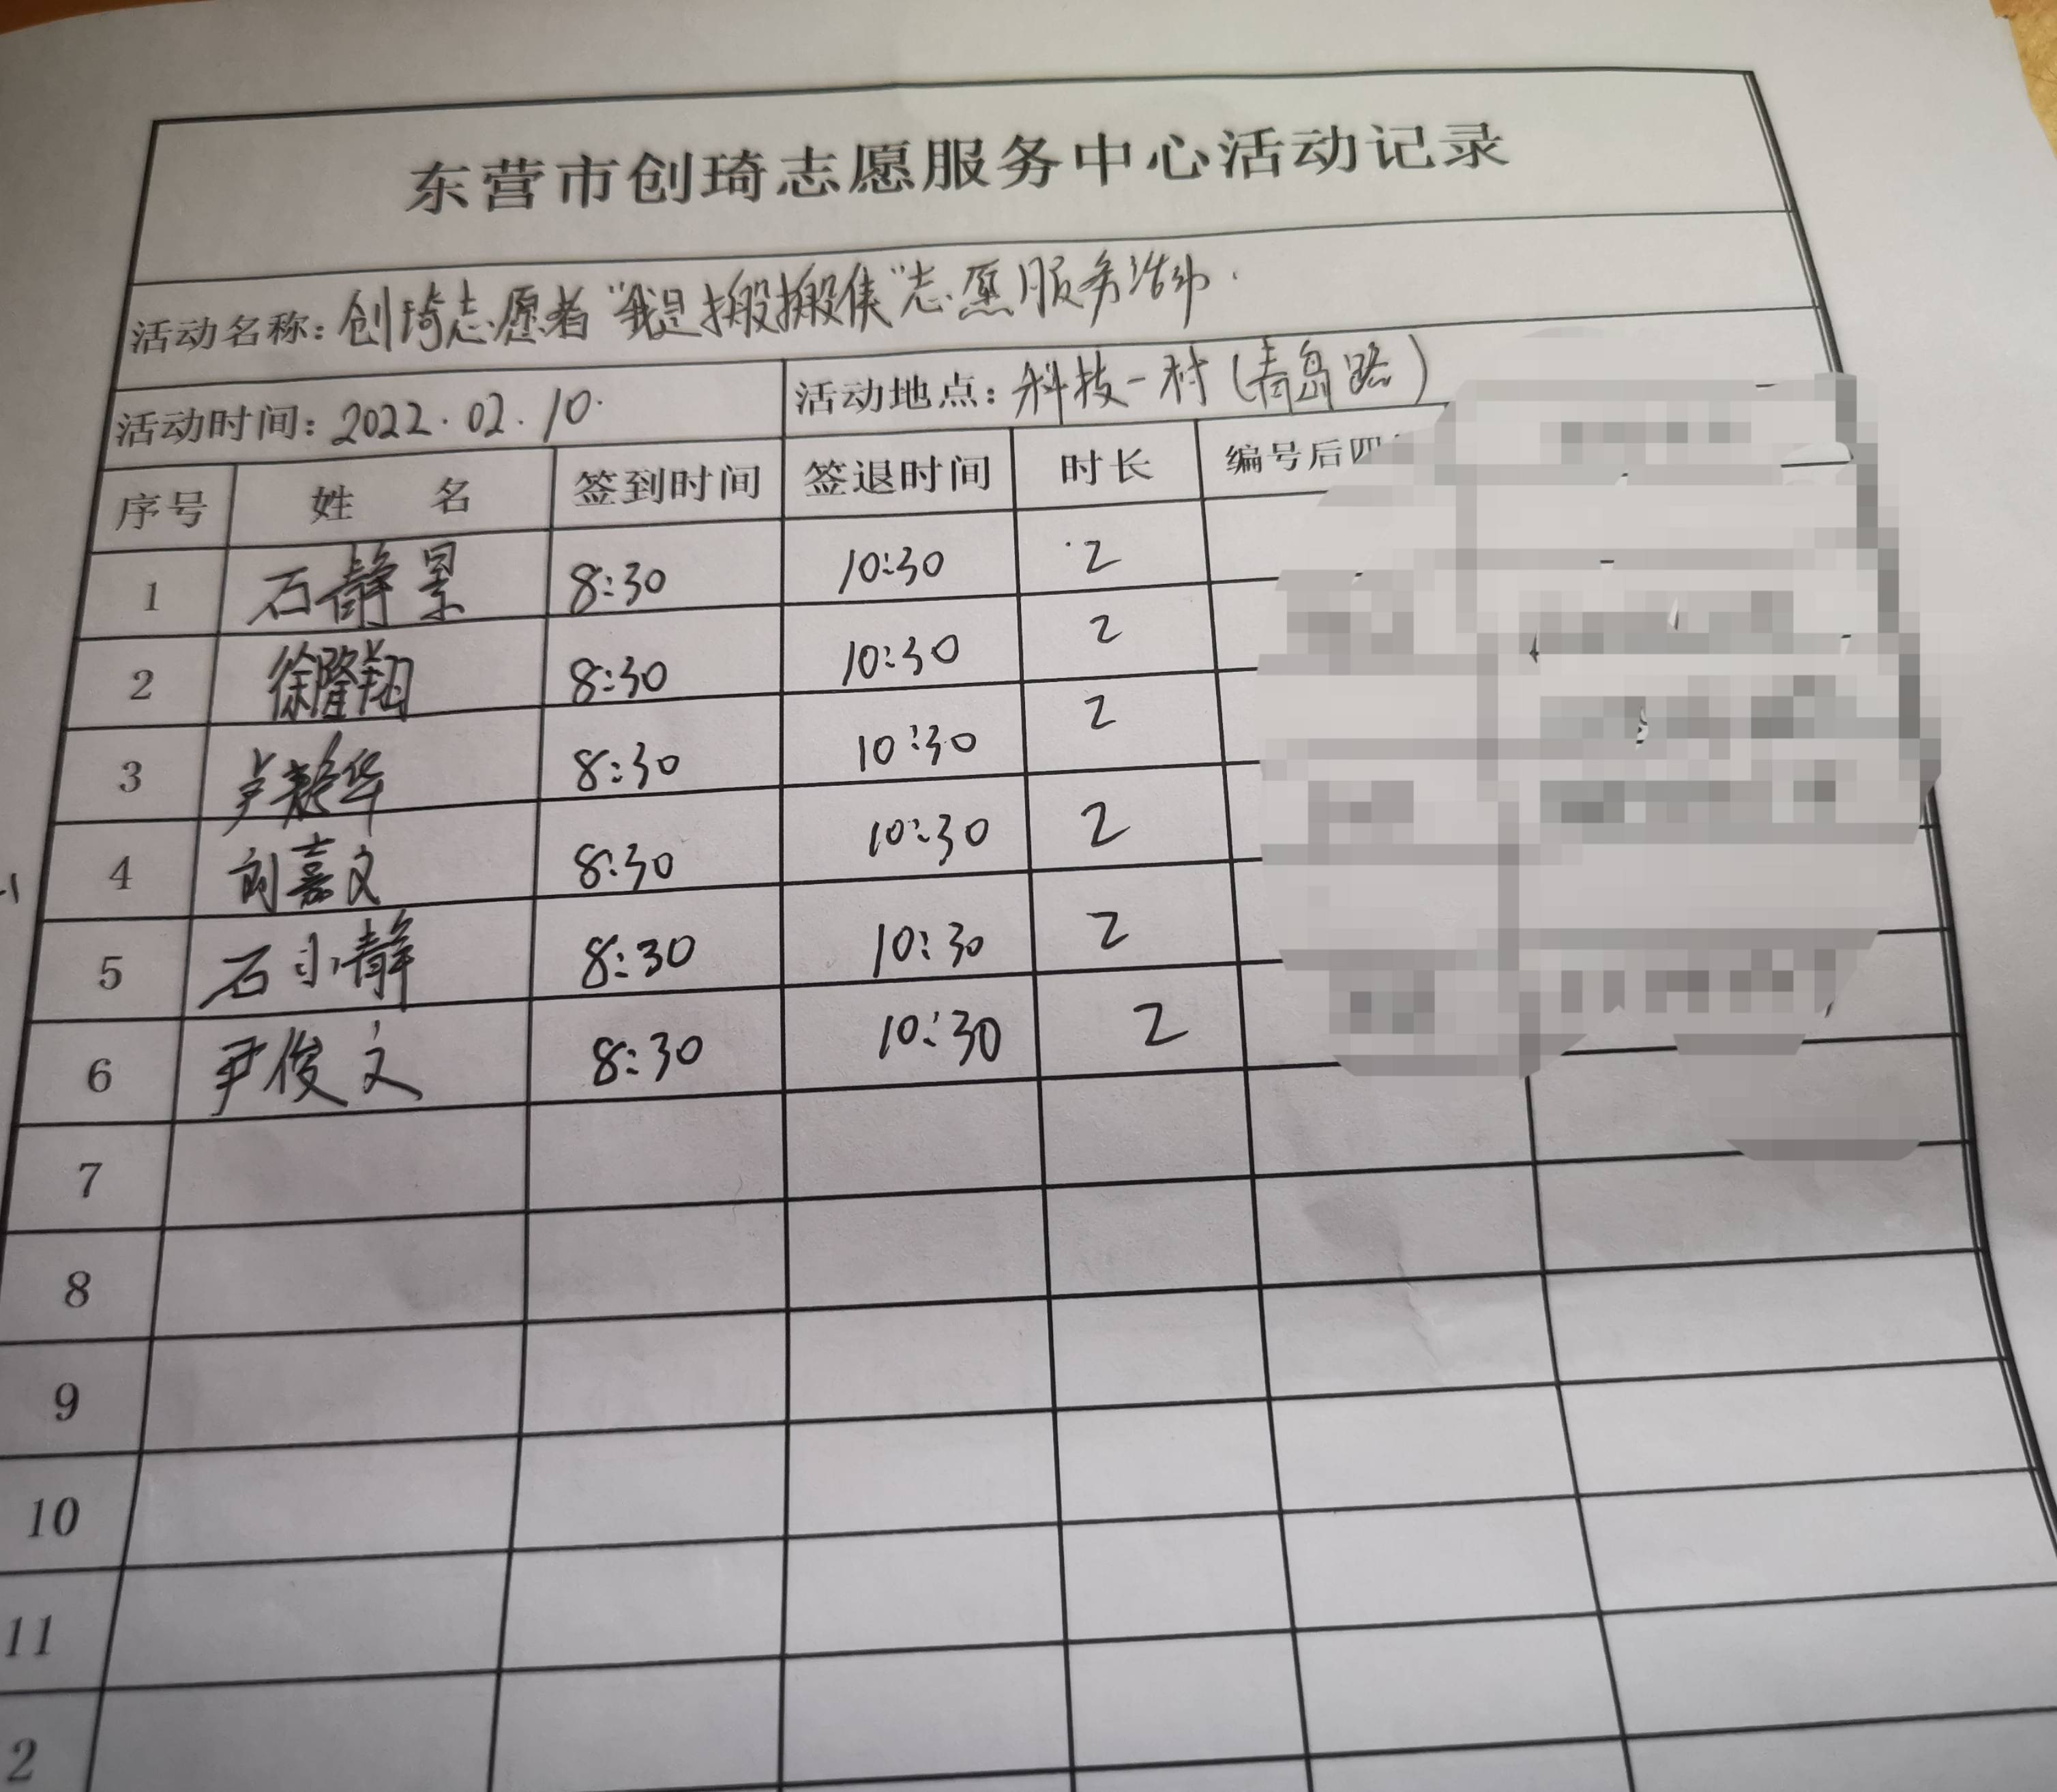 东营市创琦志愿服务中心活动记录
活动名称:创琦志愿者“我是搬搬侠”志愿服务活动.
活动时间:2022.02.10. 活动地点:科技一村(青岛路)
序号 姓名 签到时间 签退时间 时长 编号后四
1 石静景 8:30 10:30 2
2 徐隆翔 8:30 10:30 2
3 卢 华 8:30 10:30 2
4 刘嘉文 8:30 10:30 2
5 石小静 8:30 10:30 2
6 尹俊文 8:30 10:30 2
7
8
9
10
11
2